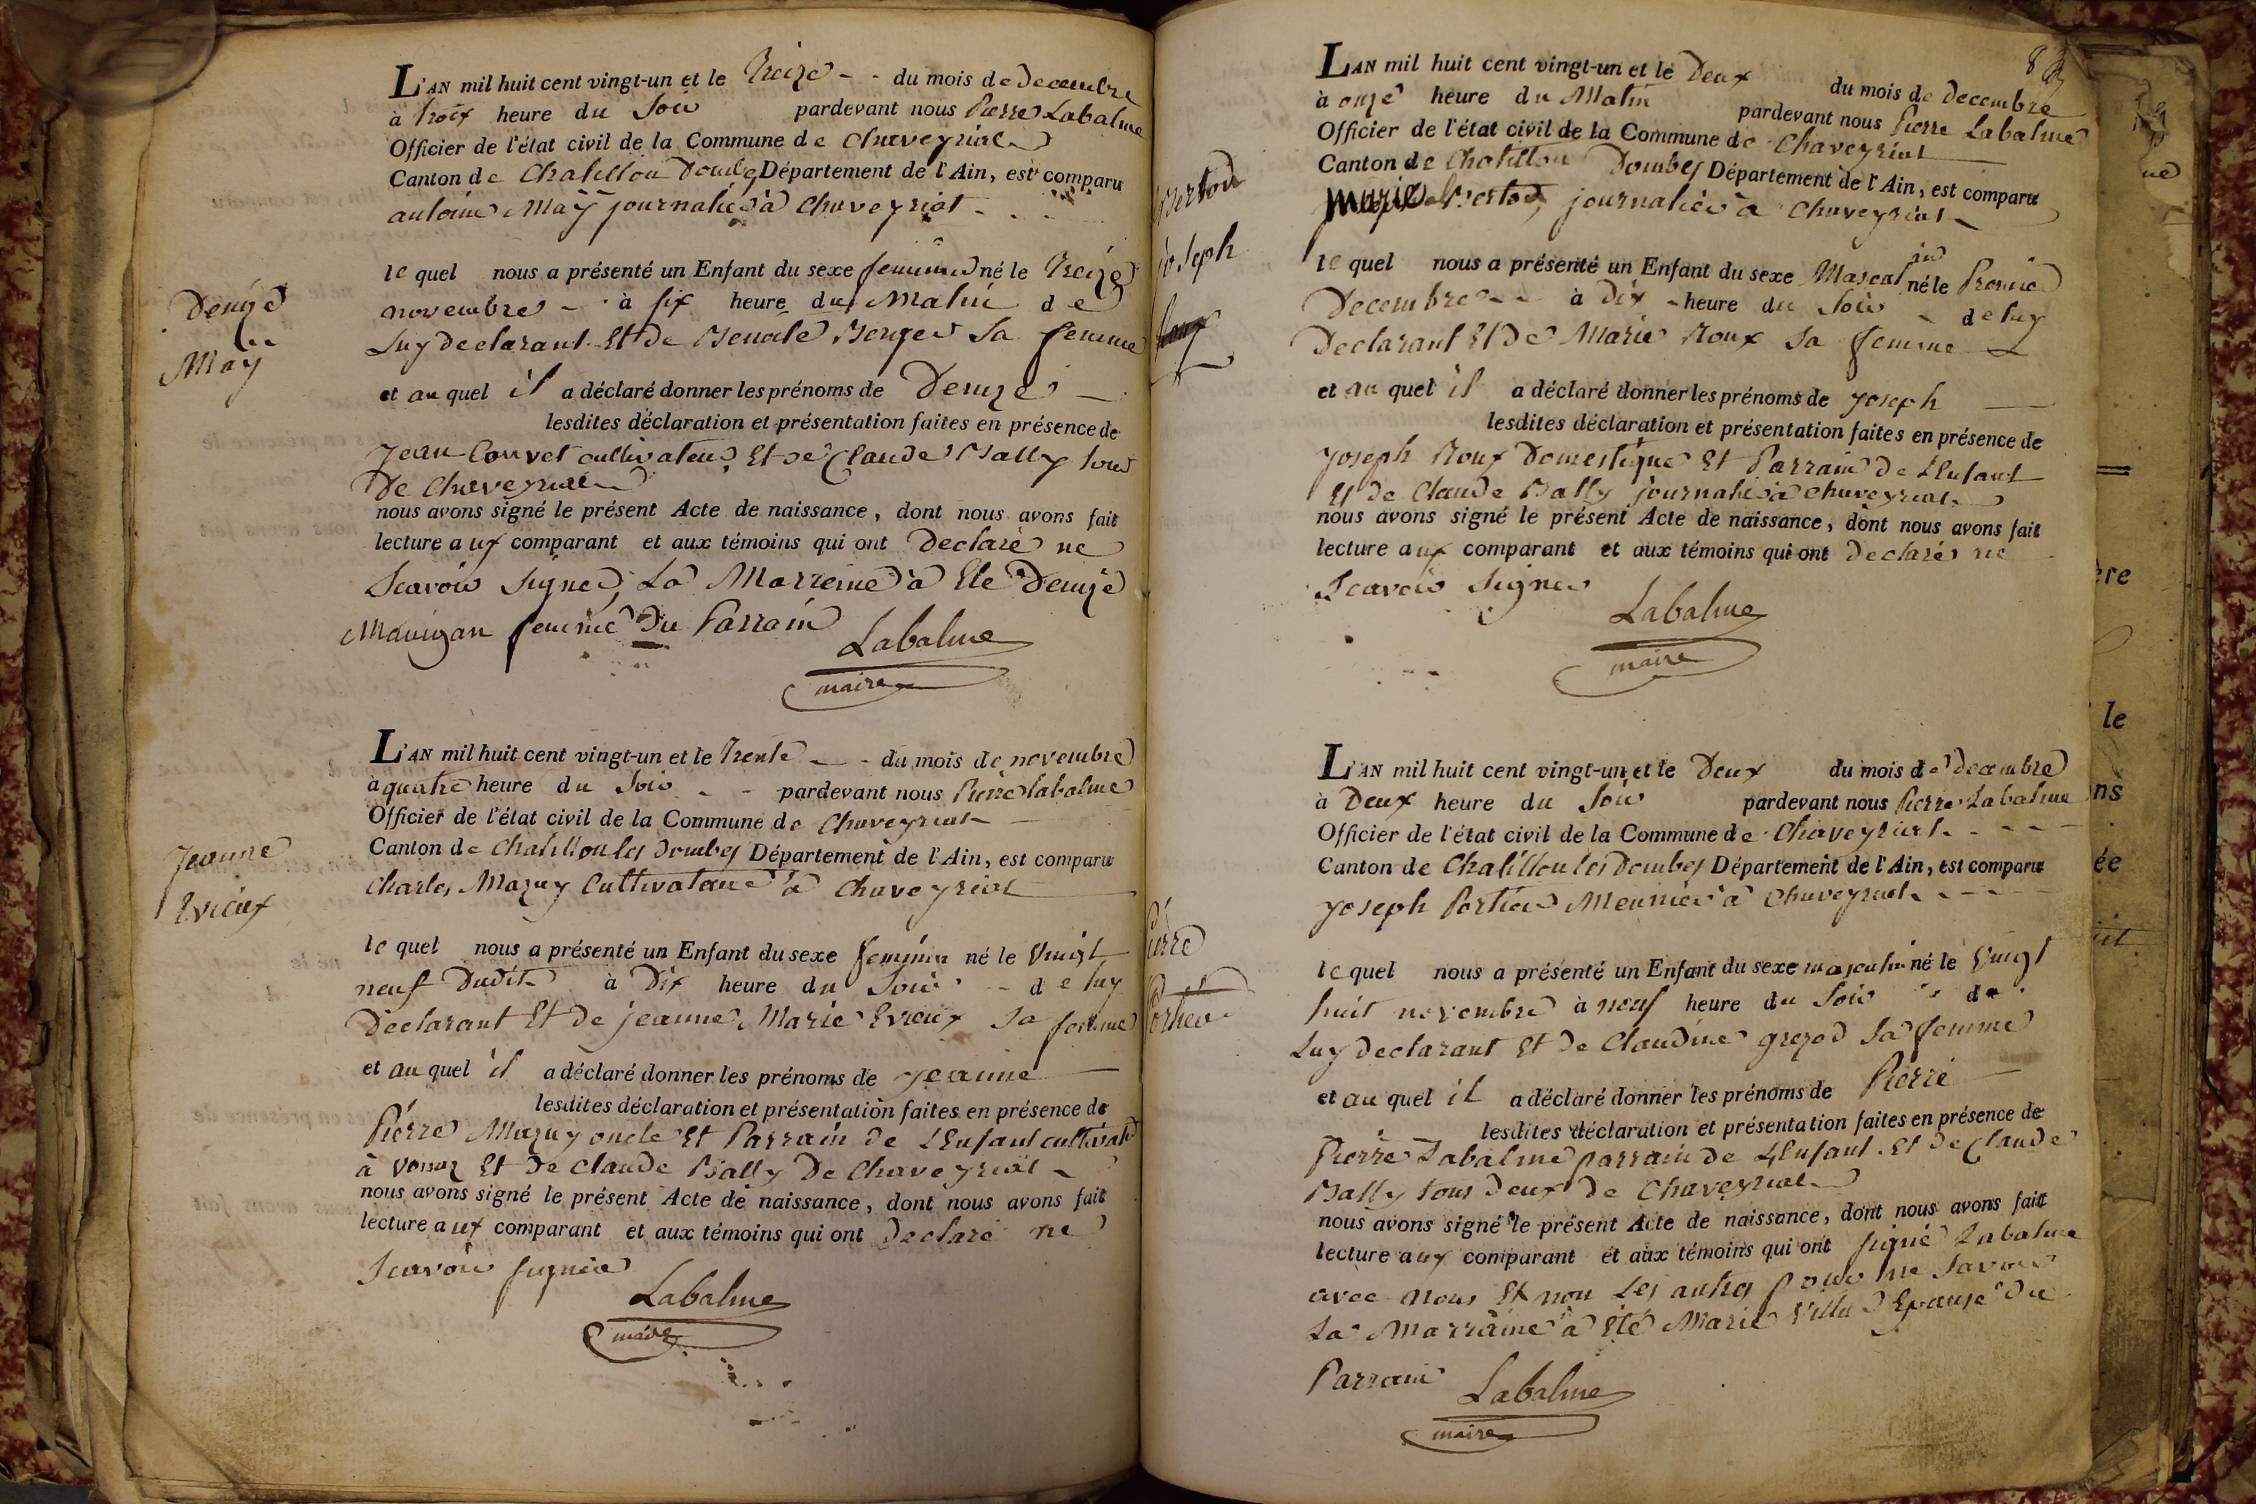 L'AN mil huit cent vingt-un et le Treize du mois de decembre
à trois heure du Soir pardevant nous Pierre Labalme
Officier de l'état civil de la Commune de Chaveyriat
Canton de Chatillon Dombes Département de l'Ain, est comparu
antoine Maÿ journalier à Chaveyriat
le quel nous a présenté un Enfant du sexe feminin né le Treize
novembre à six heure du Matin de
Luy declarant Et de Benoite Berger Sa femme
et au quel il a déclaré donner les prénoms de Denize
lesdites déclaration et présentation faites en présence de
Jean Convet cultivateur Et de Claude Bally tous
De Chaveyriat
nous avons signé le présent Acte de naissance, dont nous avons fait
lecture aux comparant et aux témoins qui ont Declaré ne
Scavoir Signer, La Marreine à Ete Denize
femme Du Parrain
Labalme
maire
Denize
Maÿ
L'AN mil huit cent vingt-un et le Trente du mois de novembre
à quatre heure du Soir pardevant nous Pierre Labalme
Officier de l'état civil de la Commune de Chaveyriat
Canton de Chatillon les Dombes Département de l'Ain, est comparu
Charles Mazuy Cultivateur à Chaveyriat
le quel nous a présenté un Enfant du sexe feminin né le Vingt
neuf Dudit à Dix heure du Soir de luy
Declarant Et de jeanne Marie Evieux sa femme
et au quel il a déclaré donner les prénoms de jeanne
lesdites déclaration et présentation faites en présence de
Pierre Mazuy oncle Et Parrain de L'Enfant
à Vonnaz Et de Claude Bally De Chaveyriat
nous avons signé le présent Acte de naissance, dont nous avons fait
lecture aux comparant et aux témoins qui ont Declaré ne
Scavoir signer
Labalme
maire
Jeanne
Evieux
83
LAN mil huit cent vingt-un et le Deux du mois de decembre
à onze heure du Matin pardevant nous Pierre Labalme
Officier de l'état civil de la Commune de Chaveyriat
Canton de Chatillon Dombes Département de l'Ain, est comparu
journalier à Chaveyriat
le quel nous a présenté un Enfant du sexe Masculin né le Premier
Decembre à Dix heure du Soir de luy
Declarant Et De Marie Roux Sa femme
et au quel il a déclaré donner les prénoms de joseph
lesdites déclaration et présentation faites en présence de
joseph Roux Domestique Et Parrain de L'Enfant
Et de Claude Bally journalier à Chaveyriat
nous avons signé le présent Acte de naissance, dont nous avons fait
lecture aux comparant et aux témoins qui ont declaré ne
Scavoir Signer
Labalme
maire
joseph
L'AN mil huit cent vingt-un et le Deux du mois de decembre
à Deux heure du Soir pardevant nous Pierre Labalme
Officier de l'état civil de la Commune de Chaveyriat
Canton de Chatillon les Dombes Département de l'Ain, est comparu
joseph Portier Meunier à Chaveyriat
le quel nous a présenté un Enfant du sexe masculin né le Vingt
huit novembre à neuf heure du Soir de
Luy declarant Et de Claudine Sa femme
et au quel il a déclaré donner les prénoms de Pierre
lesdites déclaration et présentation faites en présence de
Pierre Labalme parrain de L'Enfant Et de Claude
Bally tous deux de Chaveyriat
nous avons signé le présent Acte de naissance, dont nous avons fait
lecture aux comparant et aux témoins qui ont signé Labalme
avec nous Et non Les autres pour ne Savoir
La Marraine à Eté Marie Epouse Du
Parrain
Labalme
maire
Pierre
Portier